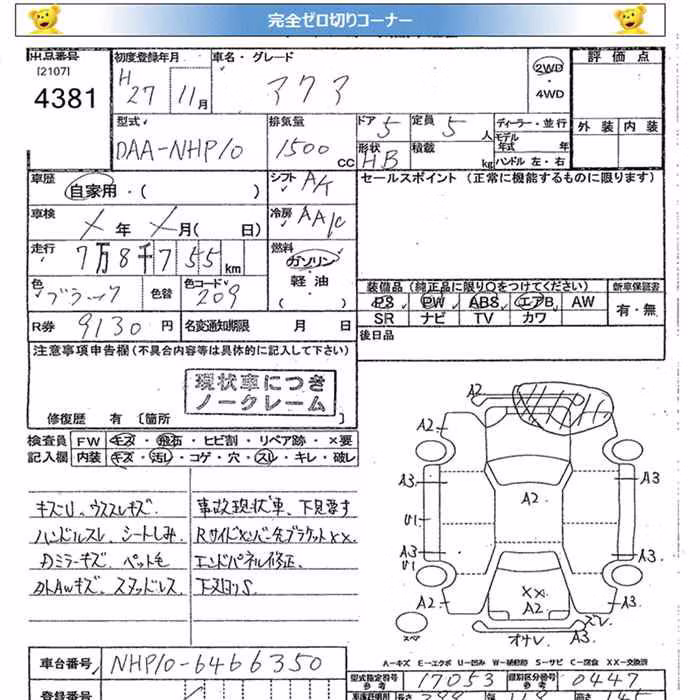 完全ゼロ切りコーナー
出品番号 初度登録年月 車名・グレード 評価点
[2107] H
4381 27 11月 アクア 2WD
・
4WD
外装 内装
型式 排気量 ドア 5 定員 5人 ディーラー・並行
DAA-NHP10 1500 CC 形状 HB 積載 kg モデル年式 年
ハンドル左・右
車歴 自家用・( ) シフト A/T セールスポイント(正常に機能するものに限ります)
車検 年 月( 日) 冷房 AA/C
走行 7万8千755km 燃料 ガソリン・軽油( )
色 ブラック 色替 色コード 209 装備品(純正品に限り○をつけてください) 新車保証書
PS PW ABS エアB AW 有・無
SR ナビ TV カワ
R券 9130円 名変通知期限 月 日 後日品
注意事項申告欄(不具合内容等は具体的に記入して下さい)
現状車につき
ノークレーム
修復歴 有 [箇所
検査員 FW キズ・飛石・ヒビ割・リペア跡・×要
記入欄 内装 キズ・汚レ・コゲ・穴・スレ・キレ・破レ
キズU、ウススレキズ
ハンドルスレ、シートしみ
Dミラーキズ、ペット毛
スタッドレス
事故現状車、下見愛す
エンドパネル修正
A2
A2
A3 A3
A2
U1
A3 A3
U1
XX
A2 A2 A3
スレ
スペア オナレ A3
A-キズ E-エクボ U-凹み W-補修跡 S-サビ C-腐食 XX-交換済
車台番号 NHP10-6466350
型式指定番号 参考 17053 類別区分番号 参考 0447
登録番号